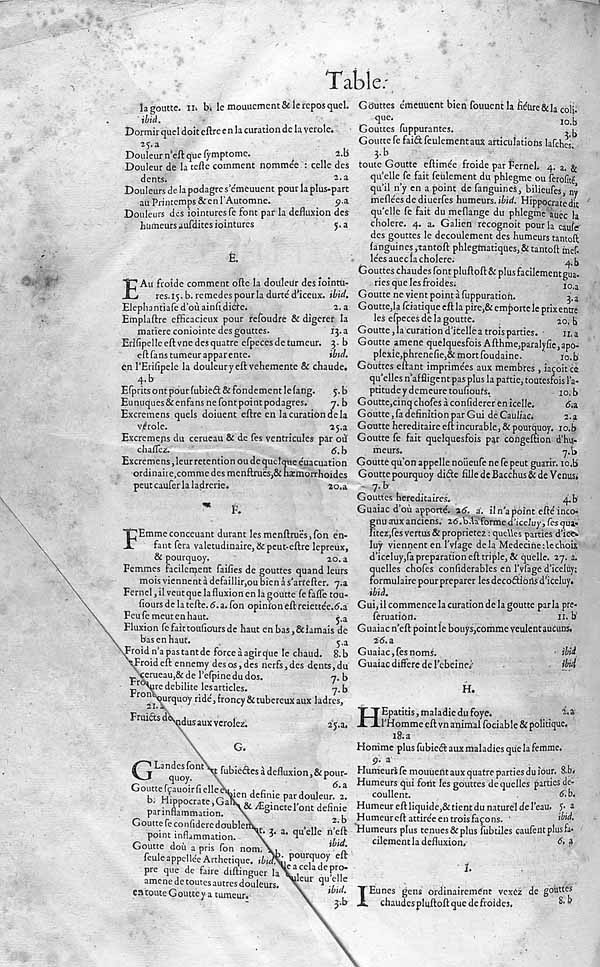 Table.
la goutte. 11. b. le mouuement & le repos quel.
ibid.
Dormir quel doit estre en la curation de la verole.
25.a
Douleur n'est que symptome. 2.b
Douleur de la teste comment nommée : celle des
dents. 2.a
Douleurs de la podagre s'émeuuent pour la plus-part
au Printemps & en l'Automne. 9.a
Douleurs des iointures se font par la defluxion des
humeurs ausdites iointures 5.a
E.
EAu froide comment oste la douleur des iointu-
res. 15. b. remedes pour la durté d'iceux. ibid.
Elephantiase d'où ainsi dicte. 2.a
Emplastre efficacieux pour resoudre & digerer la
matiere conioincte des gouttes. 13.a
Erisipelle est vne des quatre especes de tumeur. 3.b
est sans tumeur apparente. ibid.
en l'Erisipele la douleur y est vehemente & chaude.
4.b
Esprits ont pour subiect & fondement le sang. 5.b
Eunuques & enfans ne sont point podagres. 7.b
Excremens quels doiuent estre en la curation de la
vérole. 25.a
Excremens du cerueau & de ses ventricules par où
chassez. 6.b
Excremens, leur retention ou de quelque éuacuation
ordinaire, comme des menstruës, & hæmorrhoides
peut causer la ladrerie. 20.a
F.
FEmme conceuant durant les menstruës, son en-
fant sera valetudinaire, & peut-estre lepreux,
& pourquoy. 20.a
Femmes facilement saisies de gouttes quand leurs
mois viennent à defaillir, ou bien à s'arrester. 7.a
Fernel, il veut que la fluxion en la goutte se fasse tou-
siours de la teste. 6.a. son opinion est reiettée. 6.a
Feu se meut en haut. 5.a
Fluxion se fait tousiours de haut en bas, & iamais de
bas en haut. 5.a
Froid n'a pas tant de force à agir que le chaud. 8.b
Froid est ennemy des os, des nerfs, des dents, du
cerueau, & de l'espine du dos. 7.b
debilite les articles. 7.b
Front pourquoy ridé, fronçy & tubereux aux ladres,
21.
Fruicts deffendus aux verolez. 25.a.
G.
GLandes sont subiectes à defluxion, & pour-
quoy. 6.a
Goutte sçauoir si elle est bien definie par douleur. 2.
b. Hippocrate, Galien & Æginete l'ont definie
par inflammation. 2.b
Goutte se considere doublement. 3. a. qu'elle n'est
point inflammation. ibid.
Goutte doù a pris son nom. b. pourquoy est
seule appellée Arthetique. ibid. elle a cela de pro-
pre que de faire distinguer la douleur qu'elle
amene de toutes autres douleurs. ibid.
en toute Goutte y a tumeur. 3.b
Gouttes émeuuent bien souuent la fiéure & la coli-
que. 10.b
Gouttes suppurantes. 3.b
Goutte se faict seulement aux articulations lasches.
3.b
toute Goutte estimée froide par Fernel. 4. a. &
qu'elle se fait seulement du phlegme ou serosité,
qu'il n'y en a point de sanguines, bilieuses, ny
meslées de diuerses humeurs. ibid. Hippocrate dit
qu'elle se fait du meslange du phlegme auec la
cholere. 4. a. Galien recognoit pour la cause
des gouttes le decoulement des humeurs tantost
sanguines, tantost phlegmatiques, & tantost mes-
lées auec la cholere. 4.b
Gouttes chaudes sont plustost & plus facilement gua-
ries que les froides. 10.a
Goutte ne vient point à suppuration. 3.a
Goutte, la sciatique est la pire, & emporte le prix entre
les especes de la goutte. 20.b
Goutte, la curation d'icelle a trois parties. 11.a
Goutte amene quelquesfois Asthme, paralysie, apo-
plexie, phrenesie, & mort soudaine. 10.b
Gouttes estant imprimées aux membres, iaçoit ce
qu'elles n'affligent pas plus la partie, toutesfois l'a-
ptitude y demeure tousiours. 10.b
Goutte, cinq choses à considerer en icelle. 6.a
Goutte, sa definition par Gui de Cauliac. 2.a
Goutte hereditaire est incurable, & pourquoy. 10.b
Goutte se fait quelquesfois par congestion d'hu-
meurs. 7.b
Goutte qu'on appelle noüeuse ne se peut guarir. 10.b
Goutte pourquoy dicte fille de Bacchus & de Venus.
7.b
Gouttes hereditaires. 4.b
Guaiac d'où apporté. 26. a. il n'a point esté inco-
gnu aux anciens. 26. b. la forme d'iceluy, ses qua-
litez, ses vertus & proprietez : quelles parties d'ice-
luy viennent en l'vsage de la Medecine: le choix
d'iceluy, sa preparation est triple, & quelle. 27. a.
quelles choses considerables en l'vsage d'iceluy:
formulaire pour preparer les decoctions d'iceluy.
ibid.
Gui, il commence la curation de la goutte par la pre-
seruation. 11.b
Guaiac n'est point le bouys, comme veulent aucuns.
26.a
Guaiac, ses noms. ibid
Guaiac differe de l'ebeine. ibid
H.
HEpatitis, maladie du foye. 2.a
l'Homme est vn animal sociable & politique.
18.a
Homme plus subiect aux maladies que la femme.
9.a
Humeurs se mouuent aux quatre parties du iour. 8.b.
Humeurs qui font les gouttes de quelles parties dé-
coullent. 6.b.
Humeur est liquide, & tient du naturel de l'eau. 5.a
Humeur est attirée en trois façons. ibid.
Humeurs plus tenues & plus subtiles causent plus fa-
cilement la defluxion. 6.a
I.
IEunes gens ordinairement vexez de gouttes
chaudes plustost que de froides. 8.b